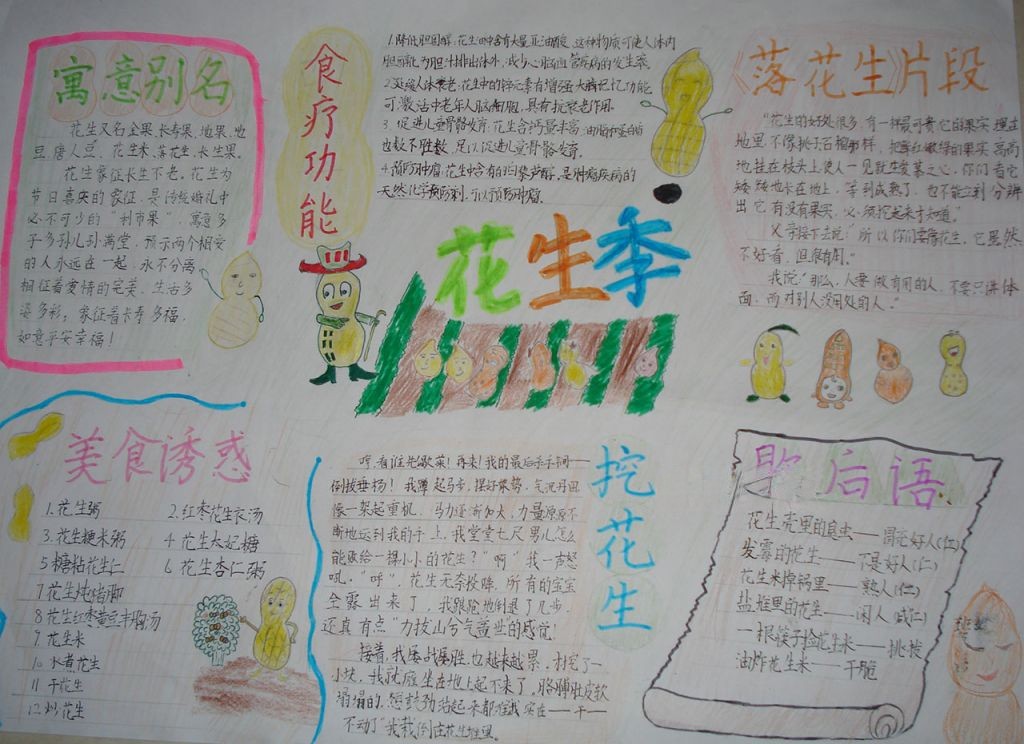 寓意别名
花生又名金果、长寿果、地果、地
豆、唐人豆、花生米、落花生、长生果。
花生象征长生不老。花生为
节日喜庆的象征,是传统婚礼中
必不可少的“利市果”,寓意多
子多孙儿孙满堂,预示两个相爱
的人永远在一起,永不分离
相征着爱情的完美、生活多
姿多彩;象征着长寿多福,
如意平安幸福!
食疗功能
1.降低胆固醇,花生油中含有大量亚油酸,这种物质可使人体内
胆固醇为胆汁排出体外,减少心脑血管疾病的发生率
2.延缓人体衰老,花生中的锌元素有增强大脑记忆功能
可激活中老年人脑细胞,具有抗衰老作用.
3.促进儿童骨骼发育,花生含钙量丰富
足以促进儿童骨骼发育.
4.预防肿瘤,花生中含有的白藜芦醇,是肿瘤疾病的
天然化学预防剂,可以预防肿瘤.
《落花生》片段
“花生的好处很多,有一样最可贵它的果实埋在
地里,不像桃子石榴那样,把鲜红嫩绿的果实高高
地挂在枝头上,使人一见就生爱慕之心,你们看它
矮矮地长在地上,等到成熟了,也不能立刻分辨
出它有没有果实,必须挖起来才知道。”
父亲接下去说:“所以你们要像花生,它虽然
不好看,但很有用。”
我说:“那么,人要做有用的人,不要只讲体
面,而对别人没用处的人。”
花生季
美食诱惑
1.花生粥
2.红枣花生衣汤
3.花生粳米粥
4.花生太妃糖
5.糖粘花生仁
6.花生杏仁粥
7.花生炖猪脚
8.花生红枣黄豆羊胸汤
9.花生米
10.水煮花生
11.干花生
12.炒花生
挖花生
哼,看谁先歇菜!再来!我的最后杀手锏——
倒拔垂杨!我蹲起马步,摆好架势,气沉丹田
像一架起重机,马力逐渐加大,力量源源不
断地运到我的手上,我堂堂七尺男儿怎么
能败给一棵小小的花生?“啊”我一声怒
吼,“呼”,花生无奈投降,所有的宝宝
全露出来了,我踉跄地倒退了几步,
还真有点“力拔山兮气盖世的感觉!
接着,我屡战屡胜,也越来越累,才挖了一
小块,我就瘫坐在地上起不来了,胳膊肚皮软
塌塌的,想鼓劲站起来都难,我实在——干——
不动了,我栽倒在花生堆里。
歇后语
花生壳里的昆虫——
发霉的花生——不是好人(仁)
花生米掉锅里——熟人(仁)
盐堆里的花生——闲人(咸仁)
一根筷子捡花生米——挑拨
油炸花生米——干脆